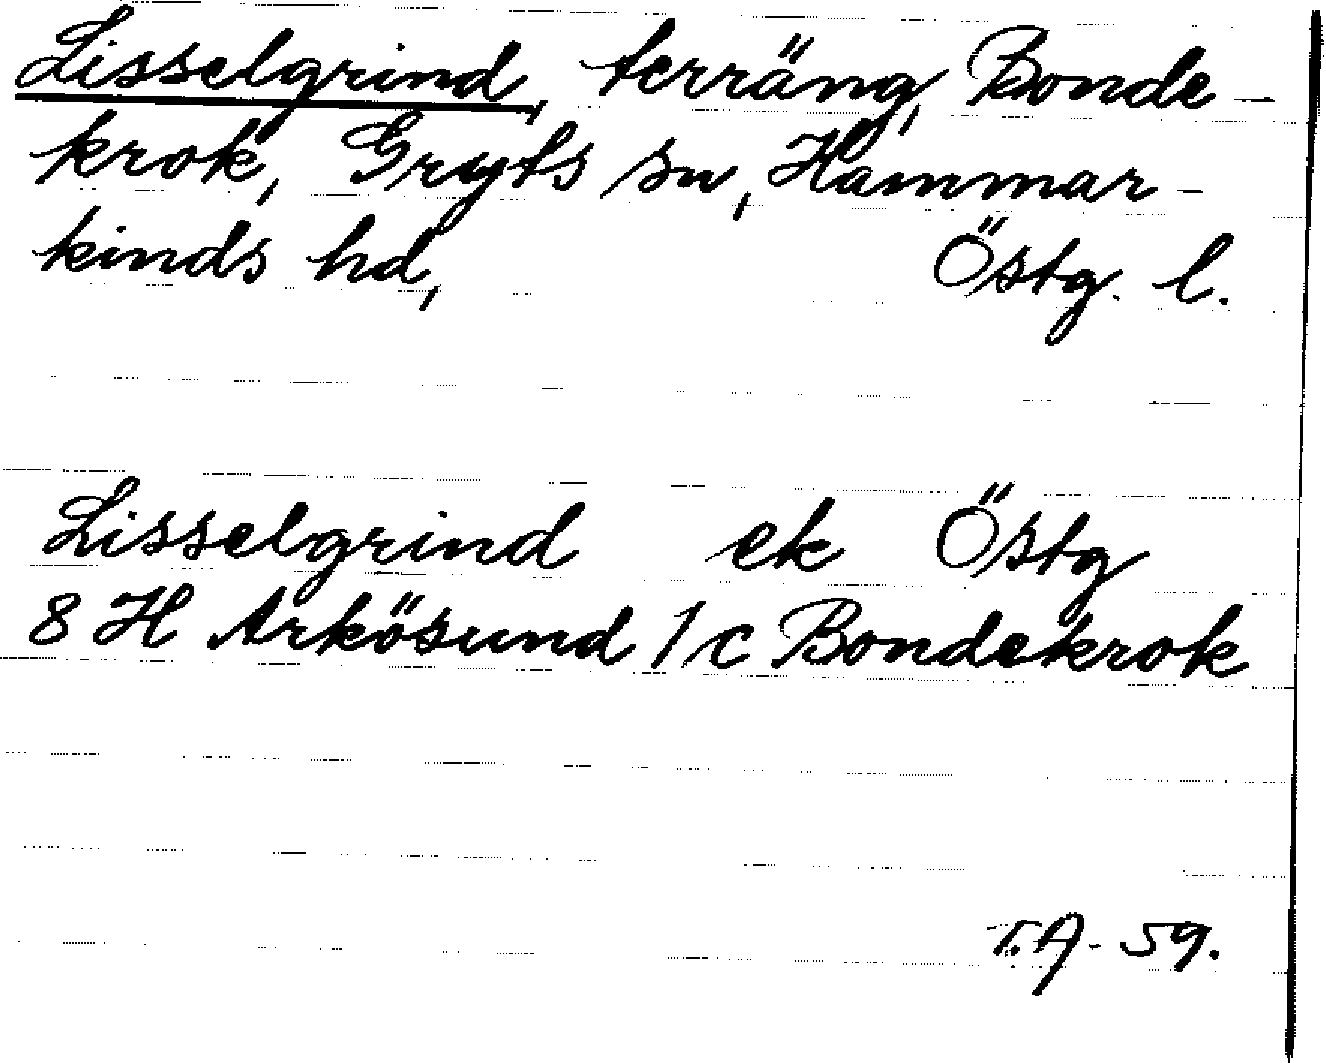 Lisselgrind, terräng, Bonde-
krok, Gryts sn, Hammar-
kinds hd, Östg. l.
Lisselgrind ek Östg
8 H Arkösund 1/c Bondekrok
T.A - 59.